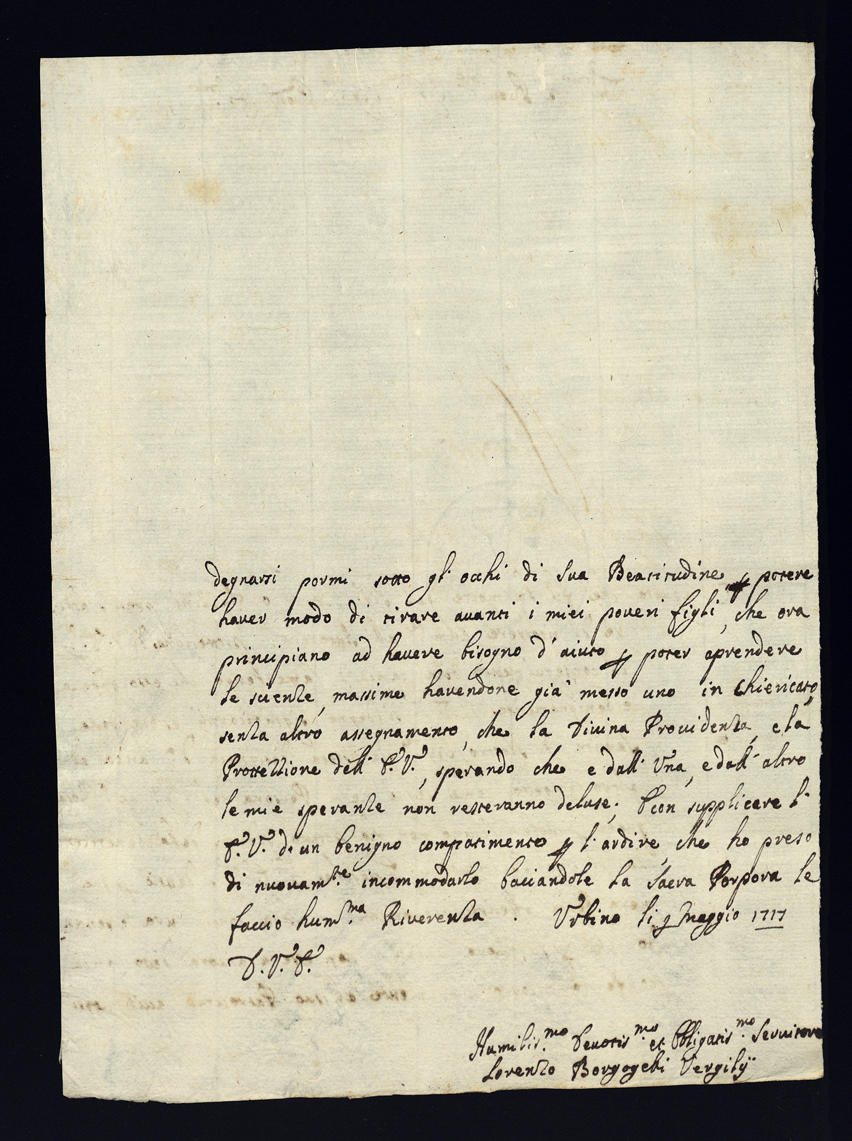 degnarsi pormi sotto gl'occhi di Sua Beatitudine p potere
haver modo di tirare avanti i miei poveri figli, che ora
principiano ad havere bisogno d'aiuto p poter aprendere
le scienze, massime havendone già messo uno in Chiericato,
senza altro assegnamento, che la Divina Providenza, e la
Protettione dell' E. V., sperando che e dall' Una, e dall' altro
le mie speranze non resteranno deluse; E con supplicare l'
E. V. di un benigno compatimento p l'ardire, che ho preso
di nuovam.te incommodarlo baciandole la Sacra Porpora le
faccio hum.ma Riverenza. Urbino li 9 Maggio 1717
D. V. E.
Humilis.mo Devotis.mo et Obligatis.mo Servitore
Lorenzo Borgogelli Vergilij